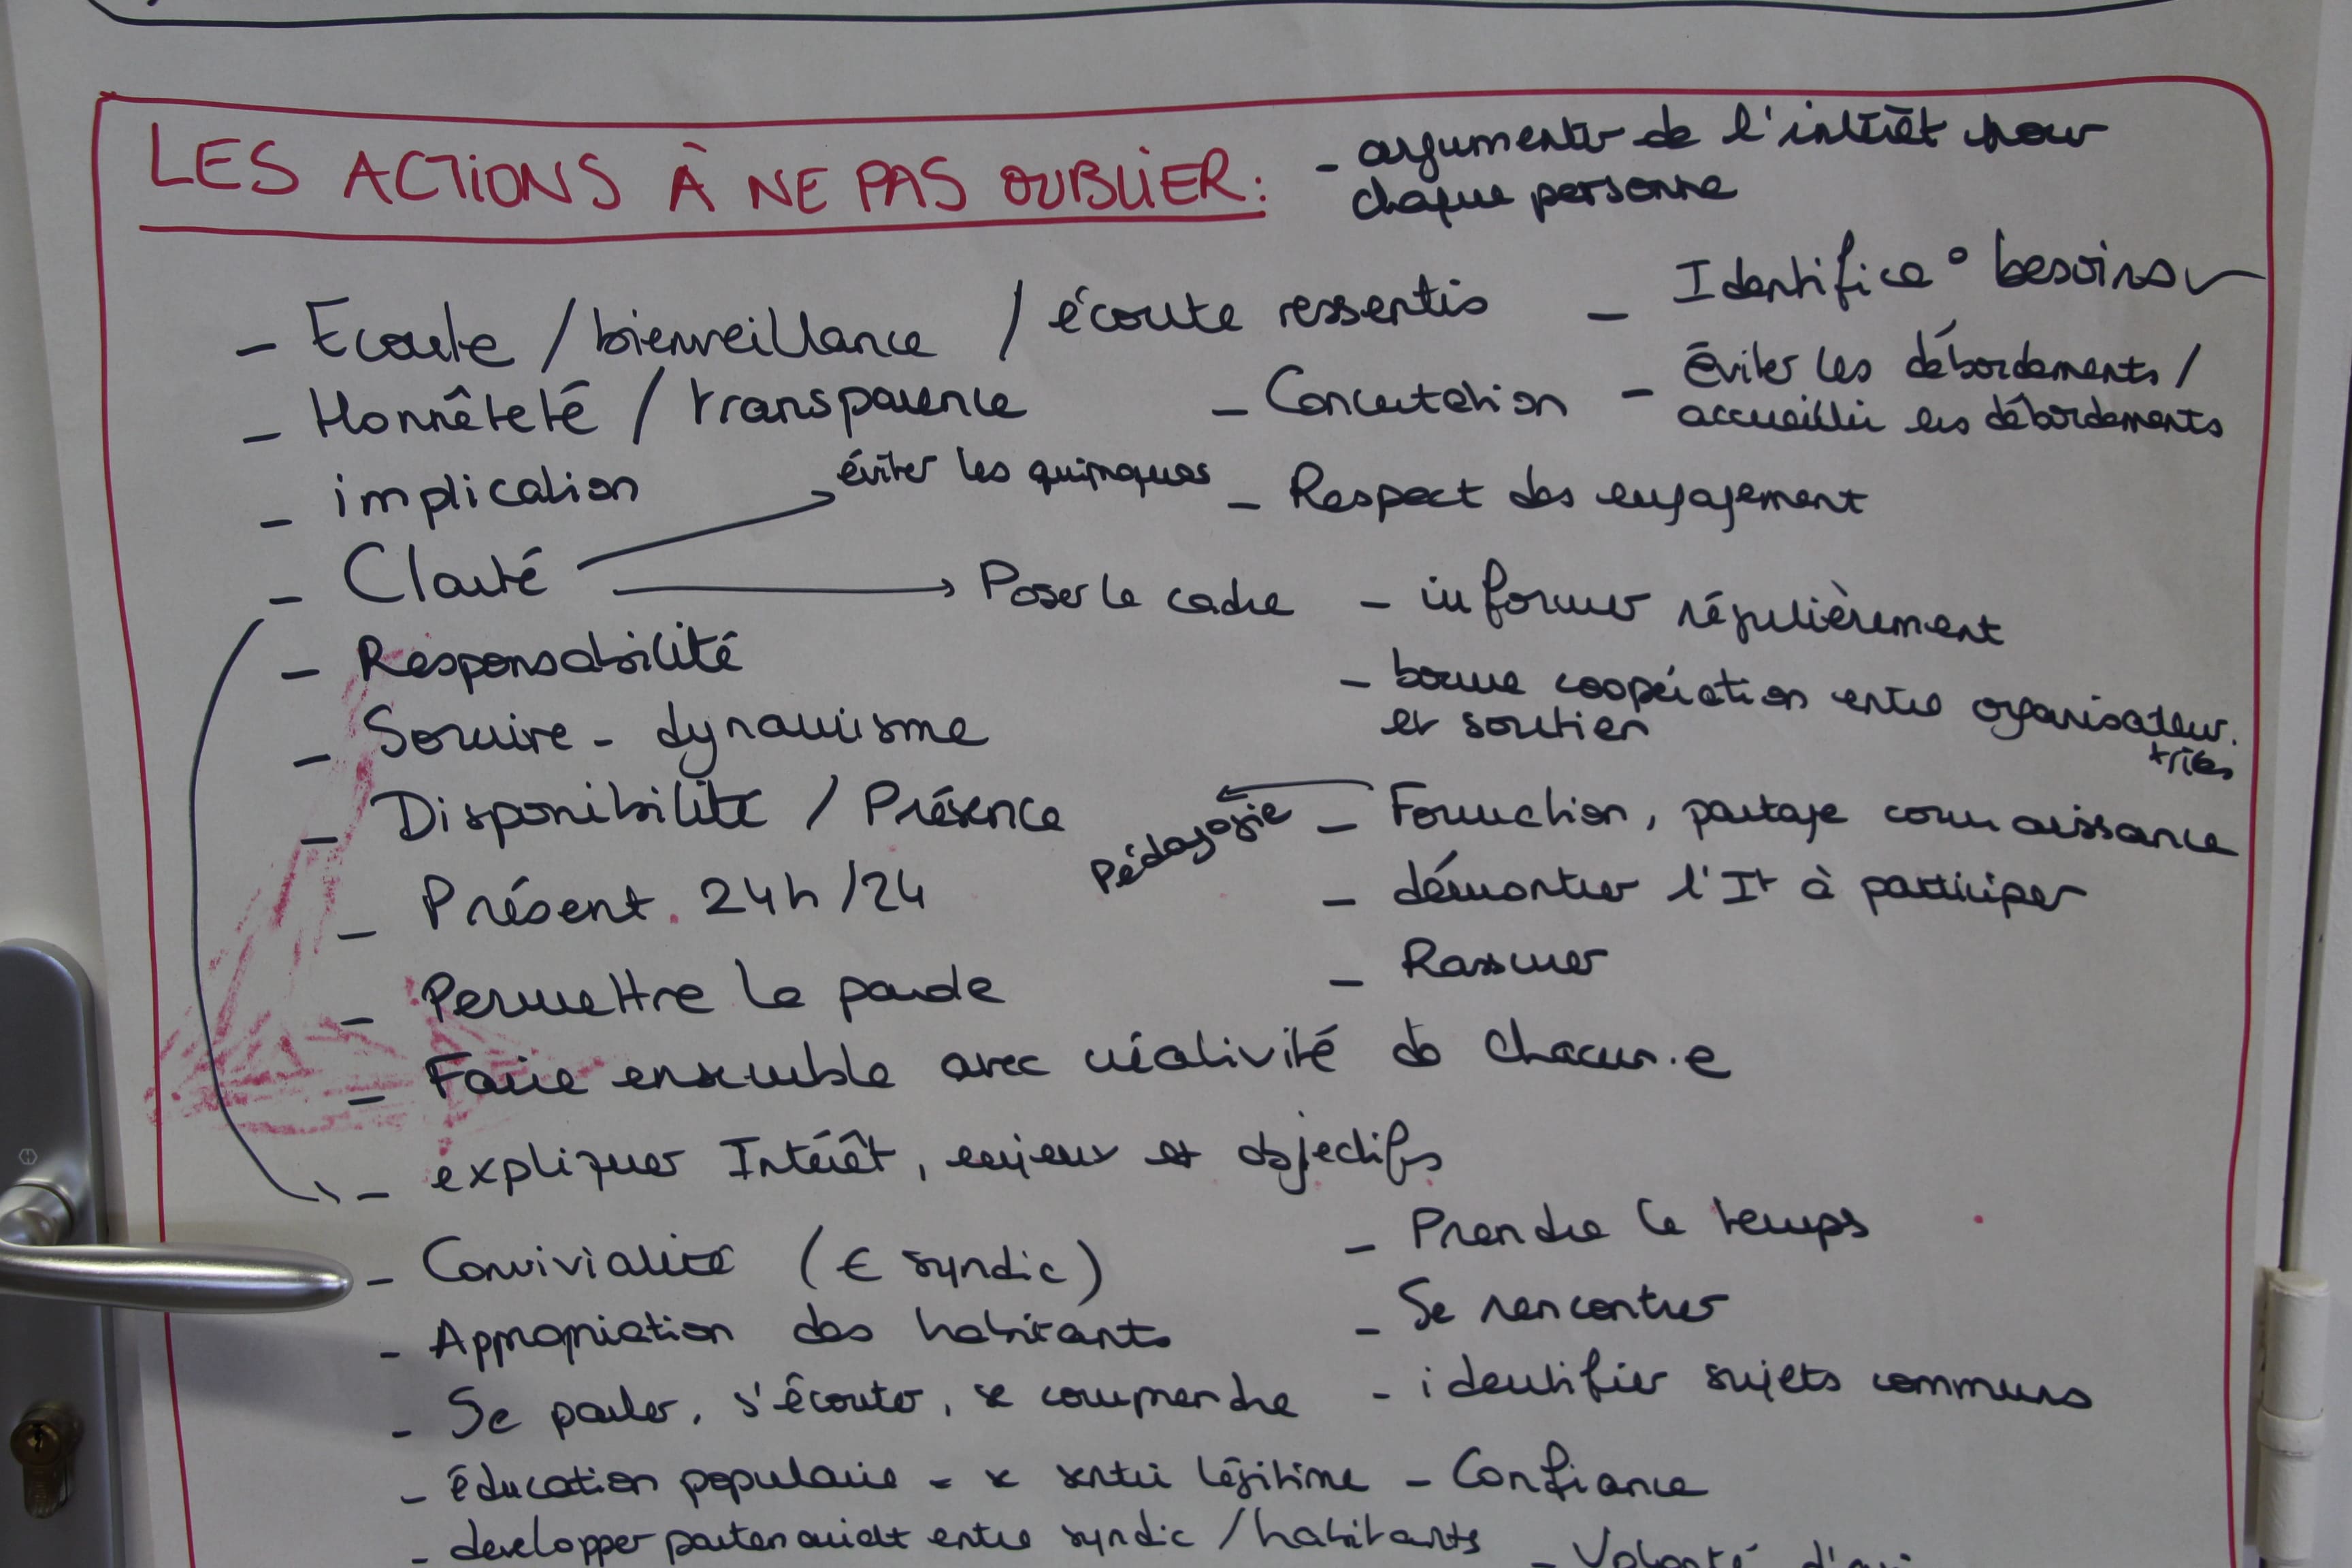 LES ACTIONS À NE PAS OUBLIER :
- argumenter de l'intérêt pour
chaque personne
- Ecoute / bienveillance / écoute ressentis
- Identifica° besoins
- Honnêteté / transparence
- Concertation
- éviter les débordements /
accueillir les débordements
- implication
éviter les quiproquos
- Respect des engagement
- Clarté
Poser le cadre
- informer régulièrement
- Responsabilité
- bonne coopération entre organisateur.
trices
et soutien
- Sourire - dynamisme
- Disponibilité / Présence
Pédagogie
- Formation, partage connaissance
- Présent 24h/24
- démontrer l'It à participer
- Permettre la parole
- Rassurer
- Faire ensemble avec créativité de chacun.e
- expliquer Intérêt, enjeux et objectifs
- Convivialité (€ syndic)
- Prendre le temps
- Appropriation des habitants
- Se rencontrer
- Se parler, s'écouter, se comprendre
- identifier sujets communs
- éducation populaire - se sentir légitime - Confiance
- developper partenariat entre syndic / habitants
- Volonté d'